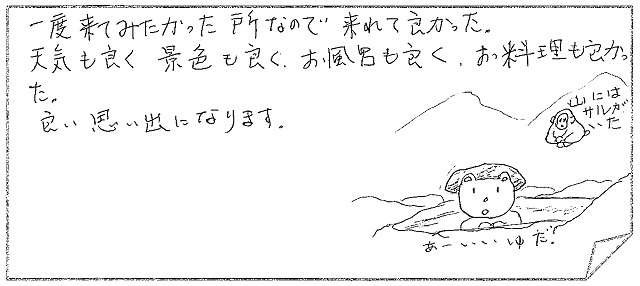 一度来てみたかった所なので来れて良かった。
天気も良く景色も良く、お風呂も良く、お料理も良かっ
た。
良い思い出になります。
山には
サルが
いた
あーいいゆだ!